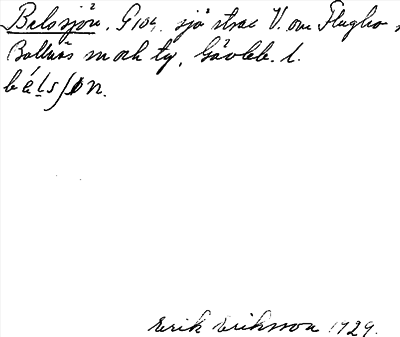 Belssjön. G108. sjö strax V. om Flugbo,
Bollnäs snok ty, Gävleb. l.
bélsʃøn.
Erik Eriksson 1929.